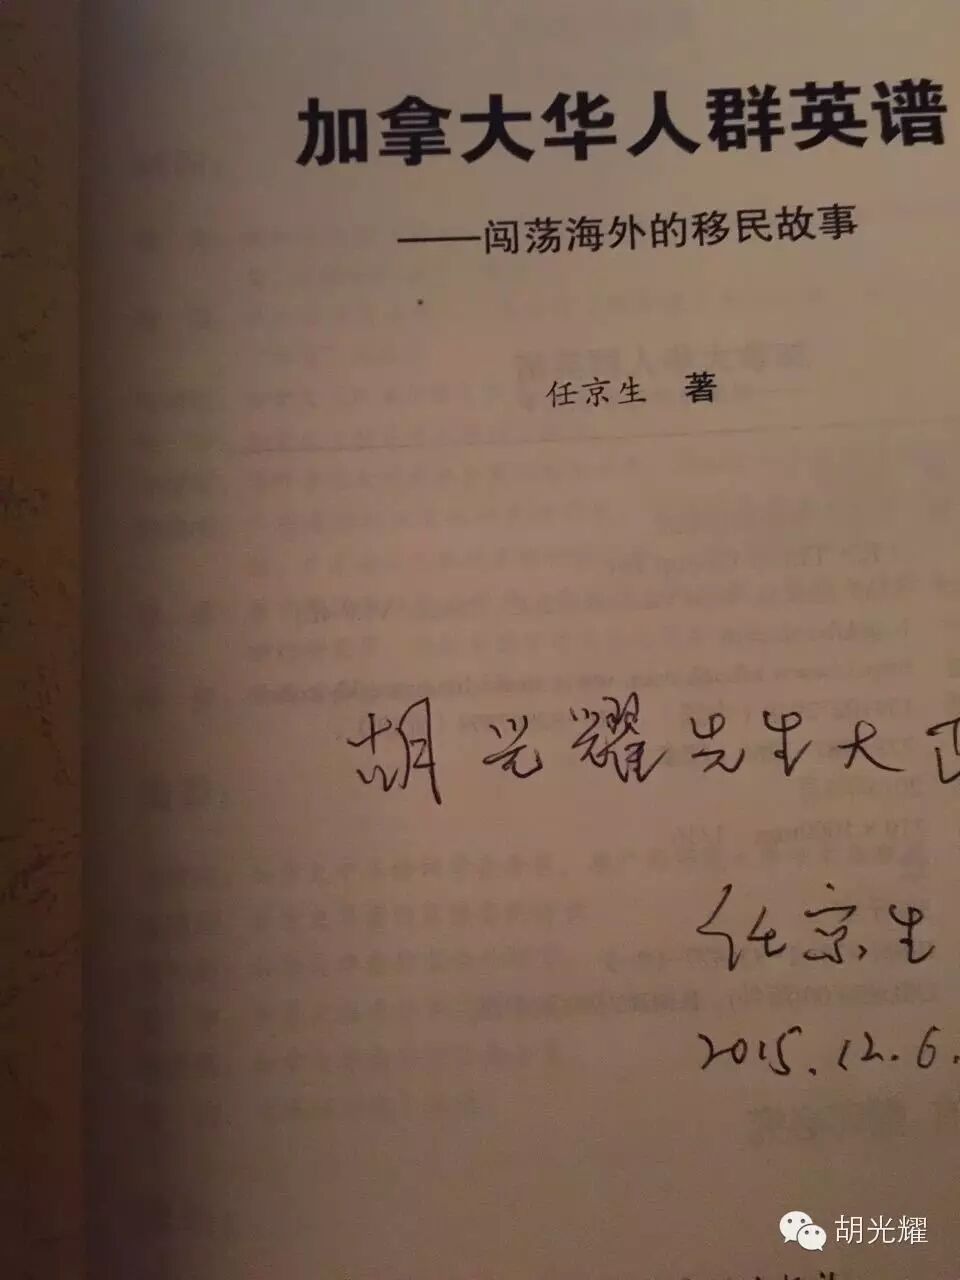 加拿大华人群英谱
——闯荡海外的移民故事
任京生 著
胡光耀先生大正
任京生
2015.12.6.
胡光耀